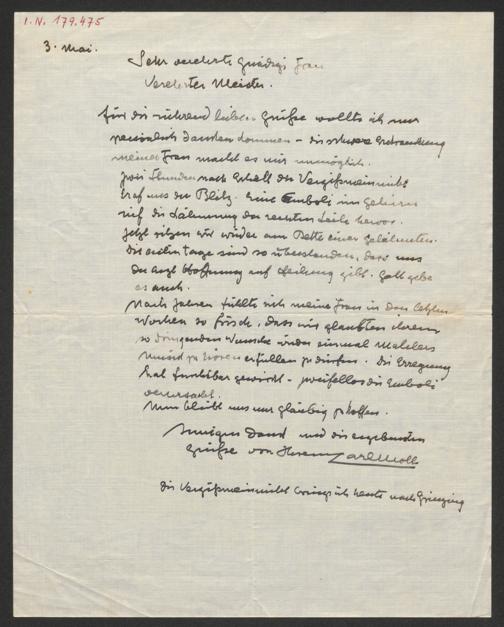 I. N. 179.475
3. Mai.
Sehr verehrte gnädige Frau
Verehrter Meister.
Für die rührend lieben Grüße wollte ich nur
persönlich danken kommen – die schwere Erkrankung
meiner Frau macht es mir unmöglich.
Zwei Stunden nach Erhalt der Vergißmeinnicht
traf uns der Blitz. Eine Emboli im Gehirn
rief die Lähmung der rechten Seite hervor.
Jetzt sitzen wir wieder am Bette einer Gelähmten.
Die ersten Tage sind so überstanden, dass uns
der Arzt Hoffnung auf Heilung gibt. Gott gebe
es auch.
Nach Jahren fühlte sich meine Frau in den letzten
Wochen so frisch, dass wir glaubten ihrem
so dringenden Wunsche wieder einmal Mahlers
Musik zu hören erfüllen zu dürfen. Die Erregung
hat furchtbar gewirkt – zweifellos die Emboli
verursacht.
Nun bleibt uns nur gläubig zu hoffen.
Innigen Dank und die ergebensten
Grüße von Ihrem Carl Moll
Die Vergißmeinnicht bringe ich heute nach Grinzing